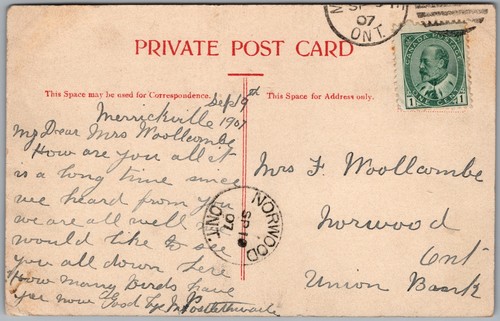 SP
07
ONT.
PRIVATE POST CARD
CANADA POSTAGE
1 ONE CENT 1
This Space may be used for Correspondence.
This Space for Address only.
Sep 9th
Merrickville 1907
My Dear Mrs Woollcombe
How are you all it
is a long time since
we heard from you
we are all well &
would like to see
you all down here
How many birds have
you now Good bye
Mrs F. Woollcombe
Norwood
Ont
Union Bank
NORWOOD
SP 10
07
ONT.